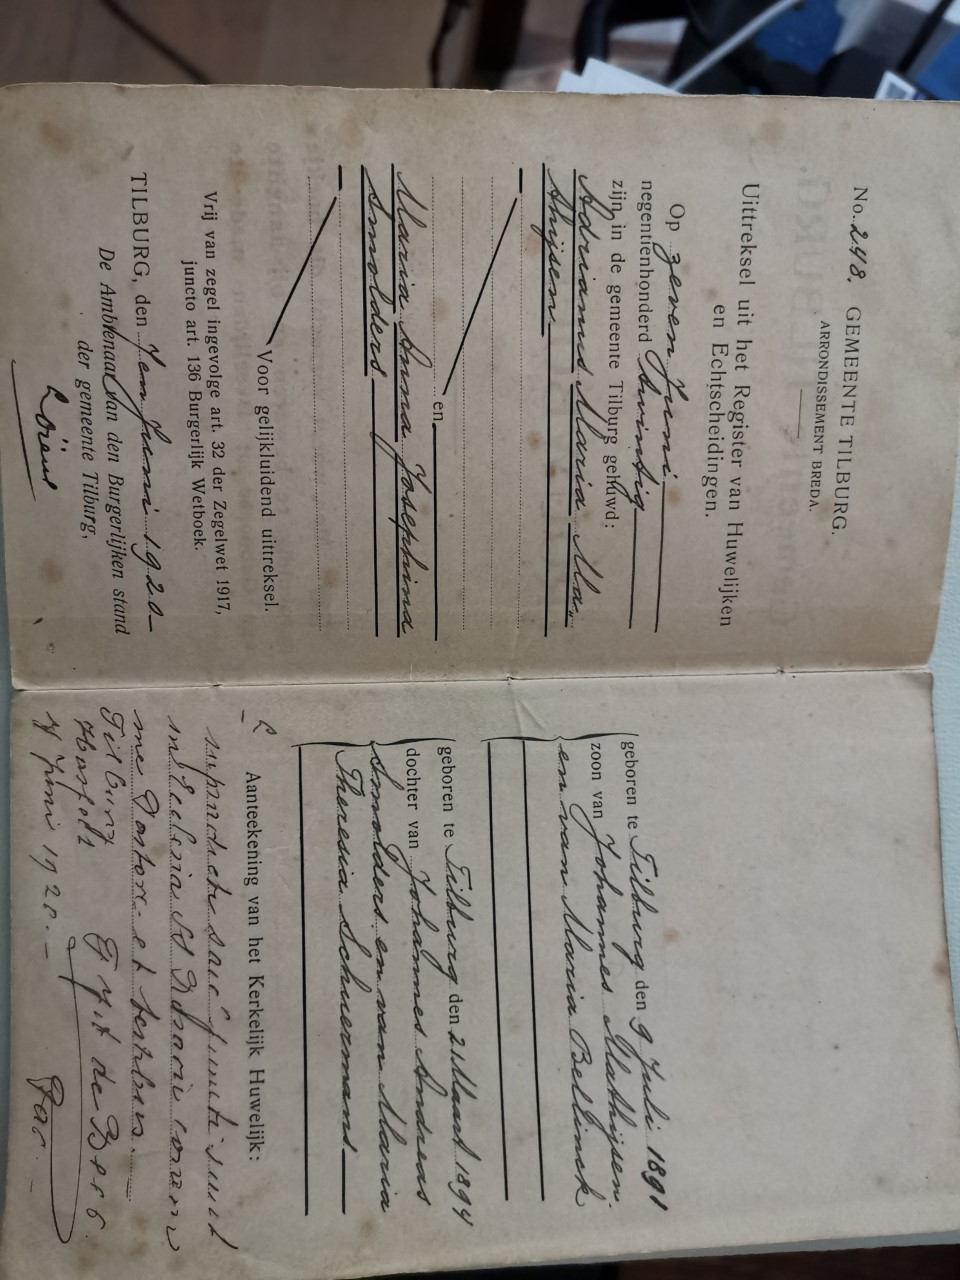 No. 248. GEMEENTE TILBURG.
ARRONDISSEMENT BREDA.
Uittreksel uit het Register van Huwelijken
en Echtscheidingen.
Op zeven Juni
negentienhonderd twintig
zijn in de gemeente Tilburg gehuwd:
Adrianus Maria
en
Maria Anna Josephina
Smolders
Voor gelijkluidend uittreksel.
Vrij van zegel ingevolge art. 32 der Zegelwet 1917,
juncto art. 136 Burgerlijk Wetboek.
TILBURG, den 7en Juni 1920
De Ambtenaar van den Burgerlijken stand
der gemeente Tilburg,
geboren te Tilburg den 9 Juli 1891
zoon van Johannes Mathijsen
en van Maria Bellinck
geboren te Tilburg den 2 Maart 1894
dochter van Johannes Andreas
Smolders en van Maria
Theresia Schuermans
Aanteekening van het Kerkelijk Huwelijk:
supradicti juncti sunt
in ecclesia St coram
me Pastore et testibus.
Tilburg
Hasselt
7 Juni 1920.
Pac.